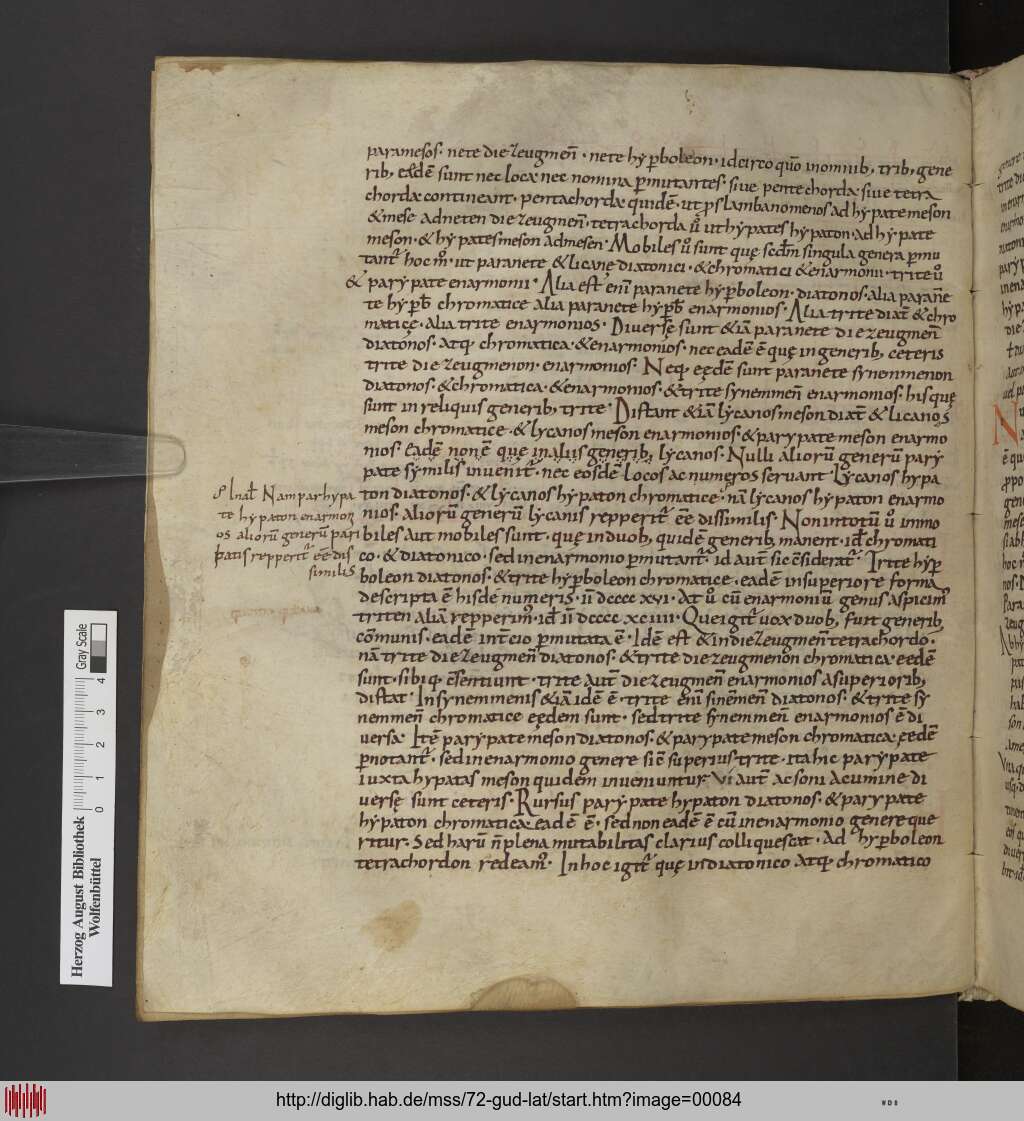 paramesos· nete diezeugmen̄· nete hyꝑboleon· idcirco quō inomnib; trib; gene
rib; eędē sunt nec loca nec nomina ꝑmutantes· siue pentechorda siue tetra
chorda contineant· pentachorda quidē· ut ꝓslambanomenos ad hypatemeson
&mese adneten diezeugmen̄· tetrachorda ů uthypates hypaton· ad hypate
meson· & hypatesmeson admesen· Mobiles ů sunt quę scdm̄ singula genera ꝑmu
tant᷑ hoc m̊· ut paranete &licanę diatonici· &chromatici &enarmonii· trite ů
& parypate enarmonii· Alia est enī paranete hyꝑboleon· diatonos· alia paran̄e
te hyꝑb̄ chromatice alia paranete hyꝑb̄ enarmonios· Alia trite diat̄ &chro
maticę· alia trite enarmonios· Diuersę sunt &iā paranete diezeugmen̄
diatonos· atq; chromatica· &enarmonios· nec eadē ē quę ingenerib; ceteris
trite diezeugmenon· enarmonios· Neq; eędē sunt paranete synemmenon
diatonos· &chromatica· &enarmonios· &trite synemmen̄ enarmonios· hisquę
sunt in reliquis generib; trite· Distant &iā lycanosmeson diat̄ & licanos
meson chromatice· & lycanosmeson enarmonios· & parypate meson enarmo
nios· Eadē non ē quę inaliis generib; lycanos· Nulli aliorū generū pary
pate similis inuenit᷑· nec eosdē locos ac numeros seruant· Lycanos hypa
ton diatonos· & lycanos hypaton chromatice· nā lycanos hypaton enarmo
nios· aliorū generū lycanis repperit᷑ eē dissimilis· Nonintotū ů immo
biles aut mobiles sunt· quę induob; quidē generib; manent· id̄ chromati
co· & diatonico· sed inenarmonio ꝑmutant᷑· id aut̄ sic c̄siderat᷑· Trite hyꝑ
boleon diatonos· &trite hyꝑboleon chromatice· eadē insuperiore forma
descripta ē hisdē numeris· ii̅ dcccc xvi· At ů cū enarmoniū genus aspicim᷒
triten aliā repperim᷒· id̄ ii̅ dcccc xciiii· Queigit᷑ uox duob; fuit generib;
cōmunis· eadē int̄cio ꝑmutata ē· Idē est &indiezeugmen̄ tetrachordo·
nā trite diezeugmen̄ diatonos· &trite diezeugmenon chromatica· eędē
sunt· sibiq; c̄sentiunt· trite aut̄ diezeugmen̄ enarmonios asuperiorib;
distat· Insynemmenis &iā idē ē· trite enī sinēmen̄ diatonos· &trite sy
nemmen̄ chromatice eędem sunt· sedtrite synemmen̄ enarmonios ē di
uersa· Itē parypate meson diatonos· &parypatemeson chromatica· ęedē
ꝑnotant᷑· sed inenarmonio genere si ē superius trite· ita hic parypate
iuxta hypatas meson quidem inueniuntur· Vi aut̄ ac soni acumine di
uersę sunt ceteris· Rursus parypate hypaton diatonos· &parypate
hypaton chromatica eadē ē· sed non eadē ē cū inenarmonio genere que
ritur· Sed harū n̄ plena mutabilitas clarius colliquescat· Ad hyꝑboleon
tetrachordon redeam᷒· Inhoc igit᷑ quę indiatonico atq; chromatico
Nam parhypa
te hypaton enarmon
os aliorū generū pari
patis repperit᷑ eē dis
similis
Herzog August Bibliothek
Wolfenbüttel
0 1 2 3 4
Gray Scale
http://diglib.hab.de/mss/72-gud-lat/start.htm?image=00084